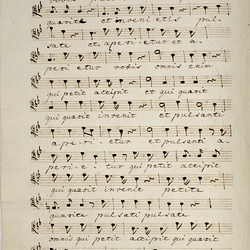 quærite et invenietis pul-
sate et aperietur et a-
perietur vobis omnis enim
qui petit accipit et qui quærit
qui quærit invenit et pulsanti
aperi-etur et pulsanti a-
peri-etur qui petit accipit
qui quærit invenit petite
quærite pulsate pulsate
omnis qui petit accipit qui quærit